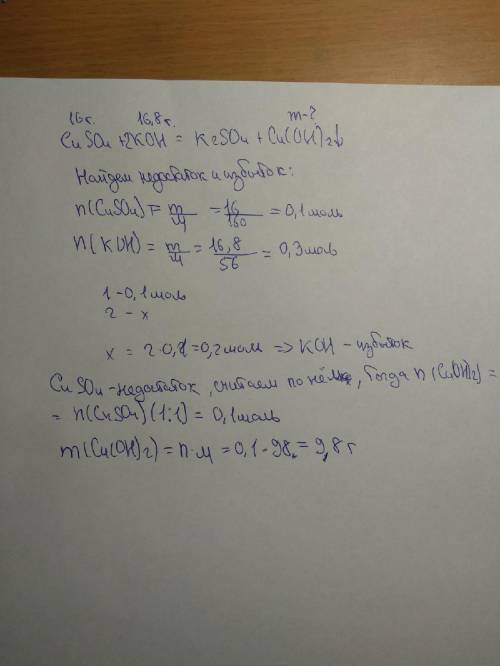 16г. 16,8г. m-?
CuSO₄+2KOH = K₂SO₄+Cu(OH)₂↓
Найдем недостаток и избыток:
n(CuSO₄)= m/M = 16/160 = 0,1моль
n(KOH)= m/M = 16,8/56 = 0,3моль
1-0,1моль
2 - x
x = 2·0,1=0,2моль => KOH-избыток
CuSO₄-недостаток, считаем по нему, Тогда n(Cu(OH)₂)=
= n(CuSO₄)(1:1)=0,1моль
m(Cu(OH)₂)=n·M=0,1·98=9,8г